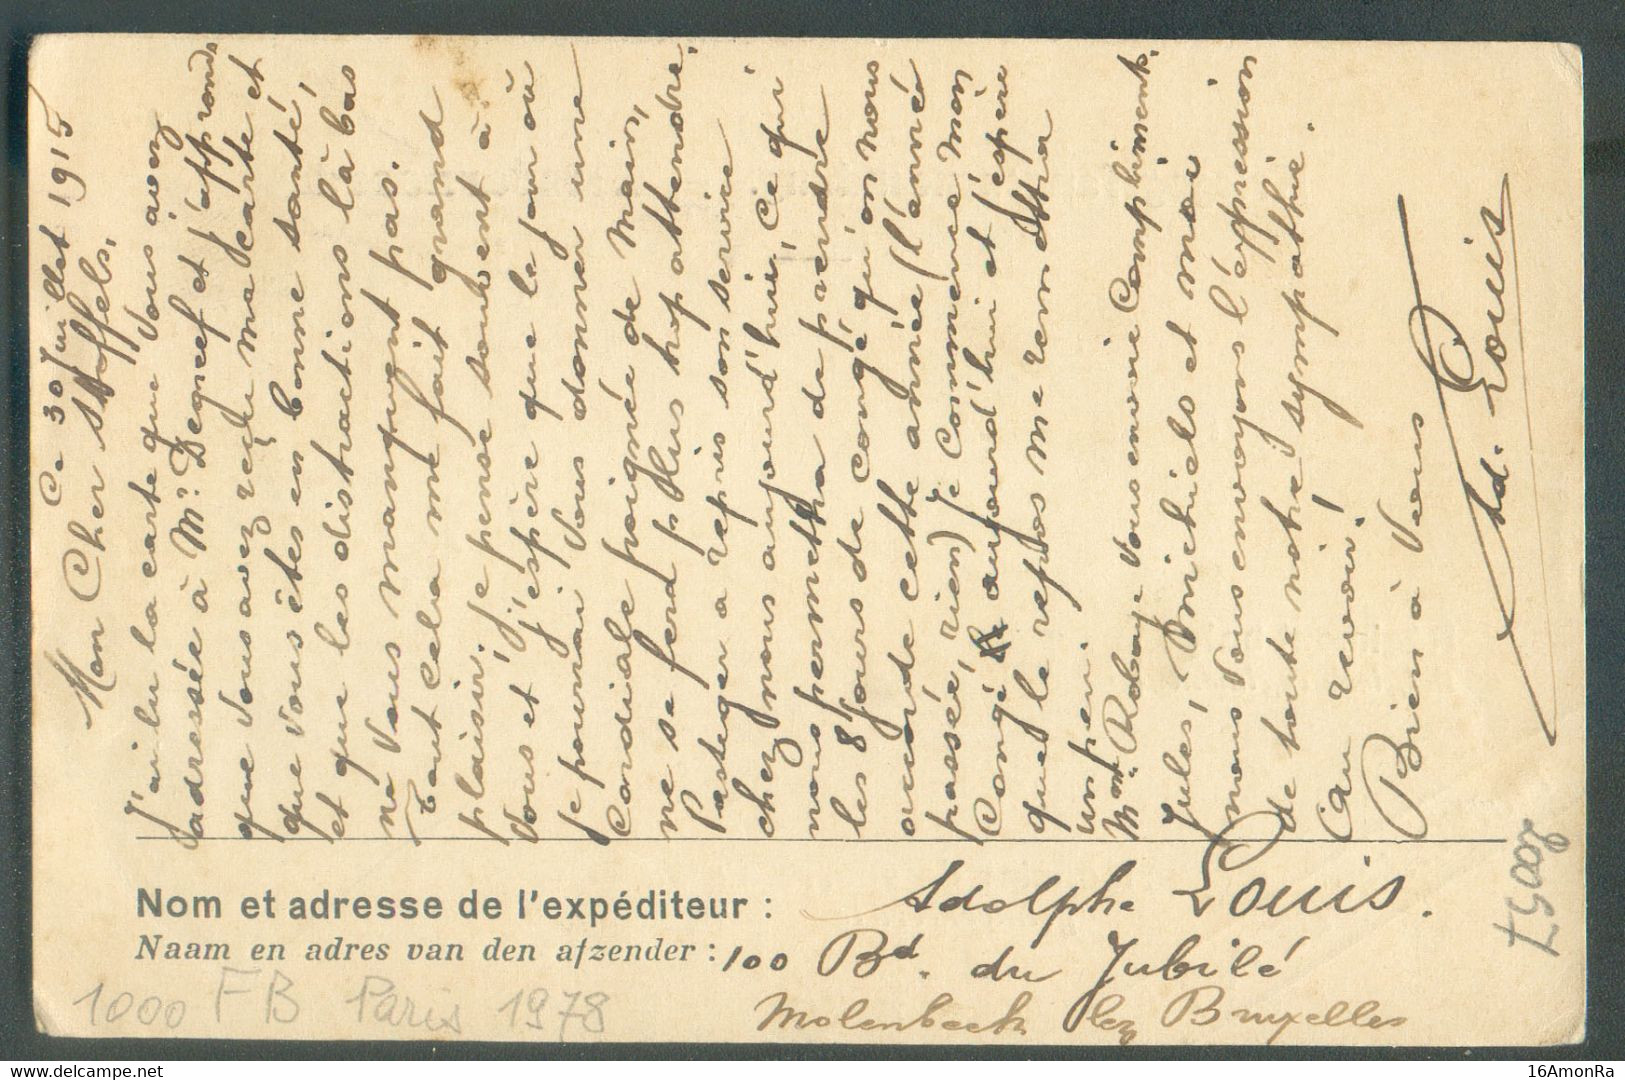 Ce 30 Juillet 1915
Mon Cher Stoffels,
J'ai lu la carte que Vous avez
adressée à Mr. Degreef et j'apprends
que Vous avez reçu ma carte et
que Vous êtes en bonne santé,
et que les distractions là bas
ne Vous manquent pas.
Tout cela me fait grand
plaisir. je pense souvent à
Vous et j'espère que le jour où
je pourrai Vous donner une
Cordiale poignée de main,
ne se fera plus trop attendre.
Partger a repris son service
chez nous aujourd'hui, Ce qui
nous permettra de prendre
les 8 jours de congé qu'on nous
accorde cette année (l'année
passée, rien) je commence mon
Congé aujourd'hui et j'espère
que le repos me remettra
un peu.
Mme Robaye Vous envoie Compliments.
Jules, Michiels et moi
nous Vous envoyons l'expression
de toute notre sympathie.
Au revoir!
Bien à Vous
Ad. Louis
Nom et adresse de l'expéditeur : Adolphe Louis.
Naam en adres van den afzender : 100 Bd. du Jubilé
Molenbeek lez Bruxelles
1000 FB Paris 1978
delcampe.net
16AmonRa